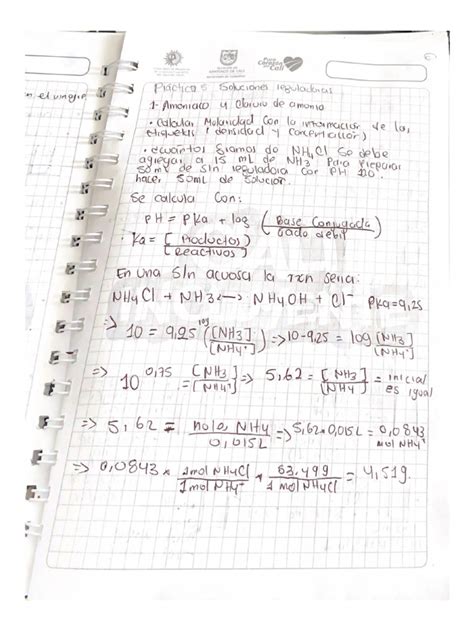 Práctica 5 Soluciones reguladoras
1- Amoniaco y Cloruro de amonio
• Calcular Molaridad con la información de las
etiquetas (densidad y concentración)
• ¿cuantos gramos de NH4Cl se debe
agregar a 15 mL de NH3 para preparar
50mL de sln reguladora con PH 10
hacer 50mL de solución.
Se calcula con:
PH = PKa + log (Base Conjugada / acido debil)
• Ka = [Productos] / [Reactivos]
En una sln acuosa la rxn seria:
NH4Cl + NH3 <-> NH4OH + Cl- PKa=9,25
=> 10 = 9,25 log ([NH3] / [NH4+]) => 10-9,25 = log [NH3] / [NH4+]
=> 10^0,75 = [NH3] / [NH4+] => 5,62 = [NH3] / [NH4] = inicial es igual
=> 5,62 = mol NH4 / 0,015L => 5,62x0,015L = 0,0843 mol NH4+
=> 0,0843 x 1mol NH4Cl / 1mol NH4+ x 53,499 / 1 mol NH4Cl = 4,519.